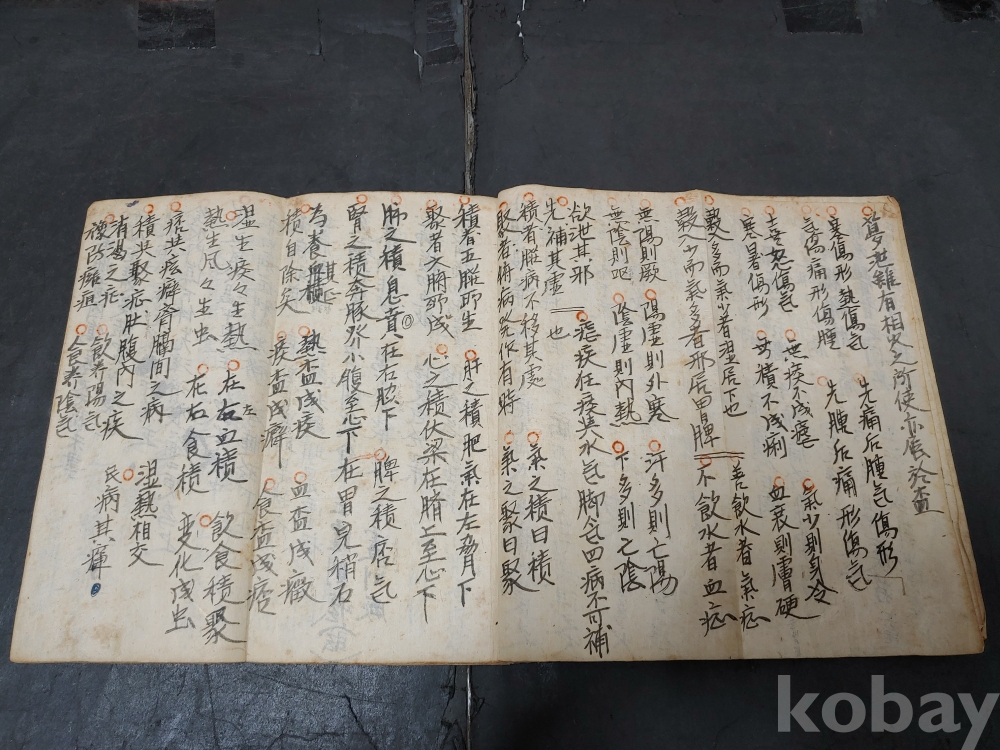 夢遊雖有相火之所使亦侅於盃
寒傷形 熱傷氣 先痛后腫氣傷形
氣傷痛形傷腫 先腫后痛形傷氣
喜怒傷氣 無痰不成瘧 氣少則身冷
寒暑傷形 無積不成痢 血衰則膚硬
穀入多而氣少者湿居下也 善飲水者氣症
穀入少而氣多者邪居胃脾 不飲水者血症
無陽則厥 陽虛則外寒 汗多則亡陽
無陰則呕 陰虛則內熱 下多則亡陰
欲泄其邪
先補其虛也 瘧疾狂痰共水氣脚氣四病不可補
積者脏病不移其處 氣之積曰積
聚者腑病發作有時 氣之聚曰聚
積者五脏所生 肝之積肥氣在左脅月下
聚者六腑所成 心之積伏梁在臍上至心下
肺之積息賁在右脇下 脾之積痞氣
腎之積奔豚 小腹至心下在胃完稍右
積自除矣 痰盃成癖 食盃成痞
為養血 熱盃成痰 血盃成癥
湿生痰々生熱 在左血積 飲食積聚
熱生風々生虫 在右食積 変化成虫
痞共痃癖胷膈間之病 湿熱相交
積共聚症状腹內之疾 民病其
有渴之症 飲养陽氣
後防癰疽 食养陰氣
kobay